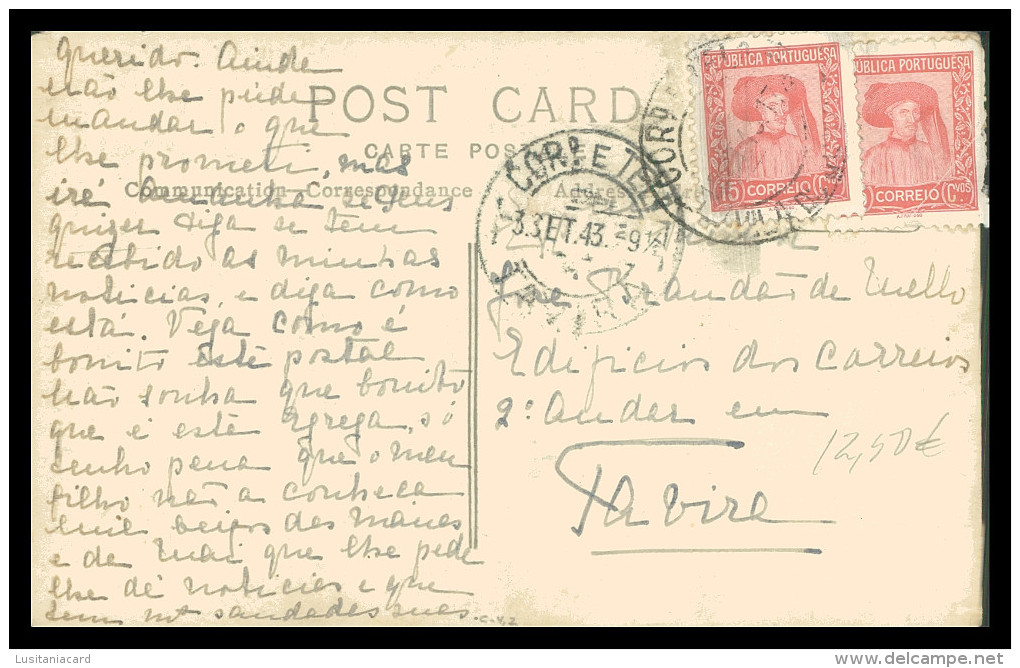 Querido. Ainda
não lhe pude
mandar o que
lhe prometi, mas
iré
quizer diga se tem
recebido as minhas
noticias, e diga como
está. Veja como é
bonito este postal
não sonha que bonito
que é esta Egreja, só
tenho pena que o meu
filho não a conheça
mil beijos das manas
e da mãi que lhe pede
lhe dê noticias e que
tem mtas saudades suas.
POST CARD
CARTE POS
Communication-Correspondance
Address
REPUBLICA PORTUGUESA
15 CORREIO C.
PUBLICA PORTUGUESA
CORREIO C.VOS
CORR. E TEL
3.SET.43.
TAVIRA
Brandão de Mello
Edificios dos Correios
2º andar em
Tavira
12,50€
Lusitaniacard
delcampe.net